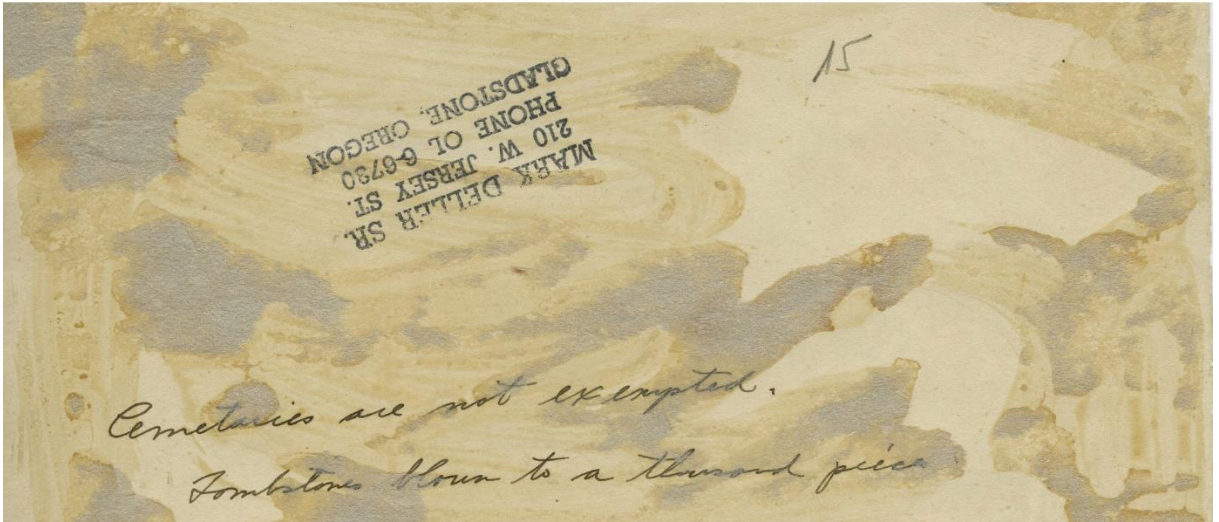 15
MARK DELLER SR.
210 W. JERSEY ST.
PHONE OL 6-6730
GLADSTONE, OREGON
Cemetaries are not exempted.
Tombstones blown to a thousand pieces